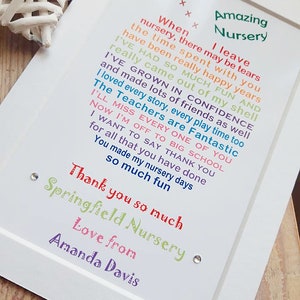 Amazing
Nursery
When I leave
nursery, there may be tears
the time spent with you
have been really happy years
I'VE HAD SO MUCH FUN AND
really came out of my shell
I'VE GROWN IN CONFIDENCE
and made lots of friends as well
I loved every story, every play time too
The Teachers are Fantastic
I'LL MISS EVERY ONE OF YOU
NOW I'M OFF TO BIG SCHOOL
I WANT TO SAY THANK YOU
for all that you have done
You made my nursery days
so much fun
Thank you so much
Springfield Nursery
Love from
Amanda Davis